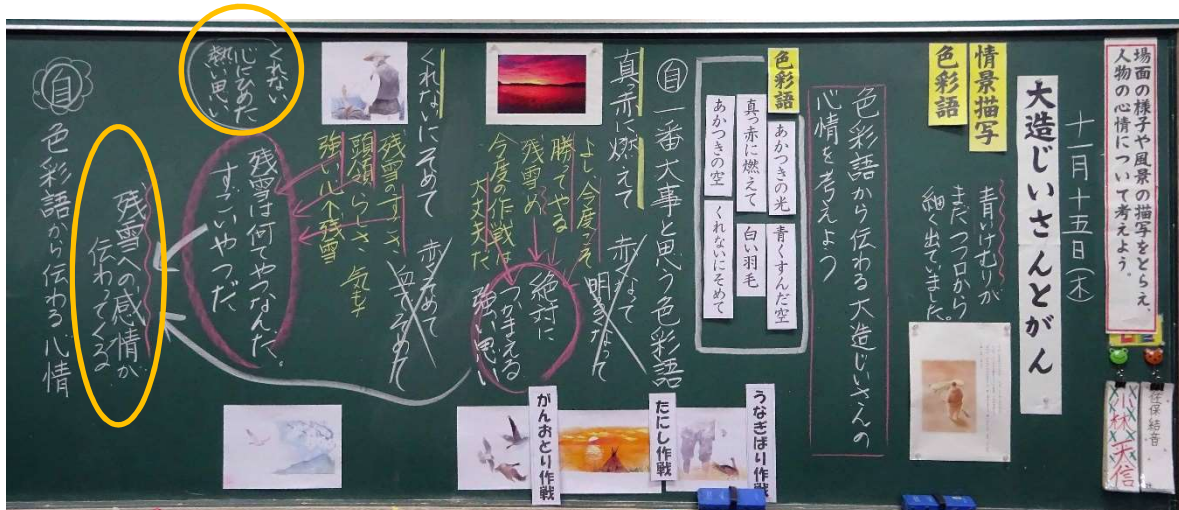 場面の様子や風景の描写をとらえ、
人物の心情について考えよう。
十一月十五日(木)
大造じいさんとがん
情景描写
色彩語
青いけむりが
まだつつ口から
細く出ていました。
色彩語から伝わる大造じいさんの
心情を考えよう
色彩語
あかつきの光
青くすんだ空
真っ赤に燃えて
白い羽毛
あかつきの空
くれないにそめて
自 一番大事と思う色彩語
真っ赤に燃えて
赤くなって
明るくなって
よし、今度こそ
勝ってやる
残雪め
今度の作戦は
大丈夫だ
絶対に
つかまえる
強い思い
くれないにそめて
赤くそめて
血でそめて
残雪のすごさ
頭領らしさ
強い心 残雪
気もち
残雪は何てやつなんだ。
すごいやつだ
くれない
心にひめた
熱い思い
残雪への感情が
伝わってくる
自 色彩語から伝わる心情
うなぎばり作戦
たにし作戦
がんおとり作戦
小林天信